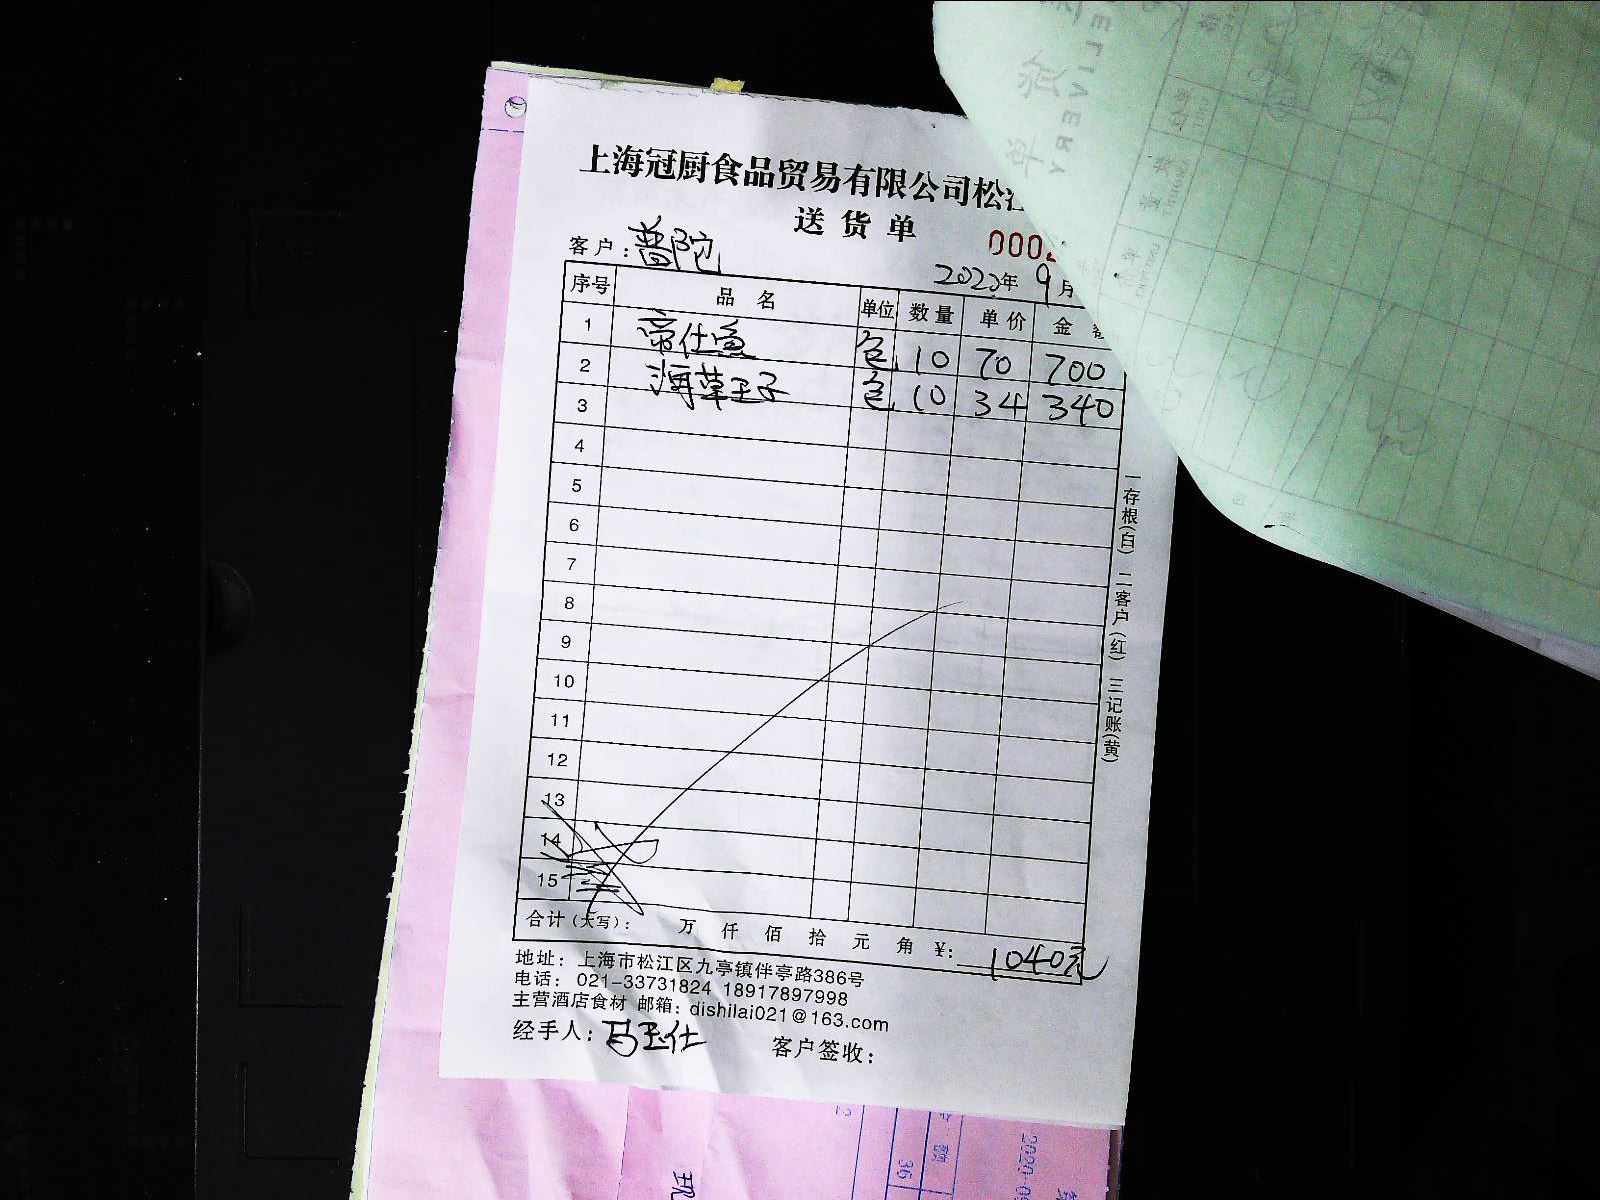 上海冠厨食品贸易有限公司松江
送货单
客户：普陀
000
2022年9月
序号 品名 单位 数量 单价 金
1 帝仕鱼 包 10 70 700
2 海草王子 包 10 34 340
3
4
5
6
7
8
9
10
11
12
13
14
15
合计（大写）： 万 仟 佰 拾 元 角 ¥: 1040元
地址：上海市松江区九亭镇伴亭路386号
电话：021-33731824 18917897998
主营酒店食材 邮箱：dishilai021@163.com
经手人：马玉仕 客户签收：
一存根(白) 二客户(红) 三记账(黄)
DELIVERY
36
现